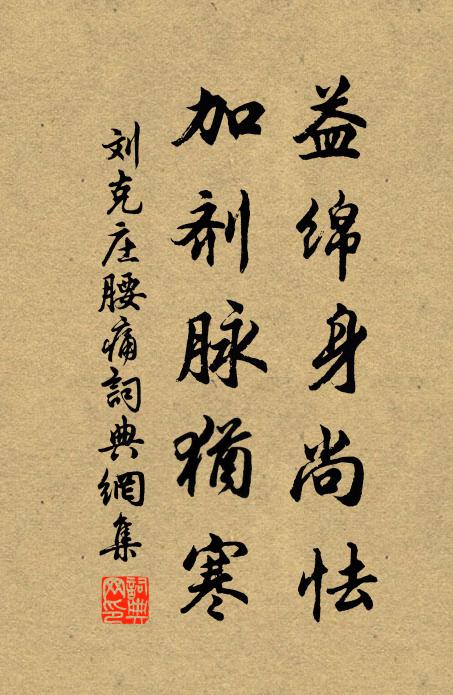 益绵身尚怯
加剂脉犹寒
刘克庄腰痛詞典網集
詞典網印